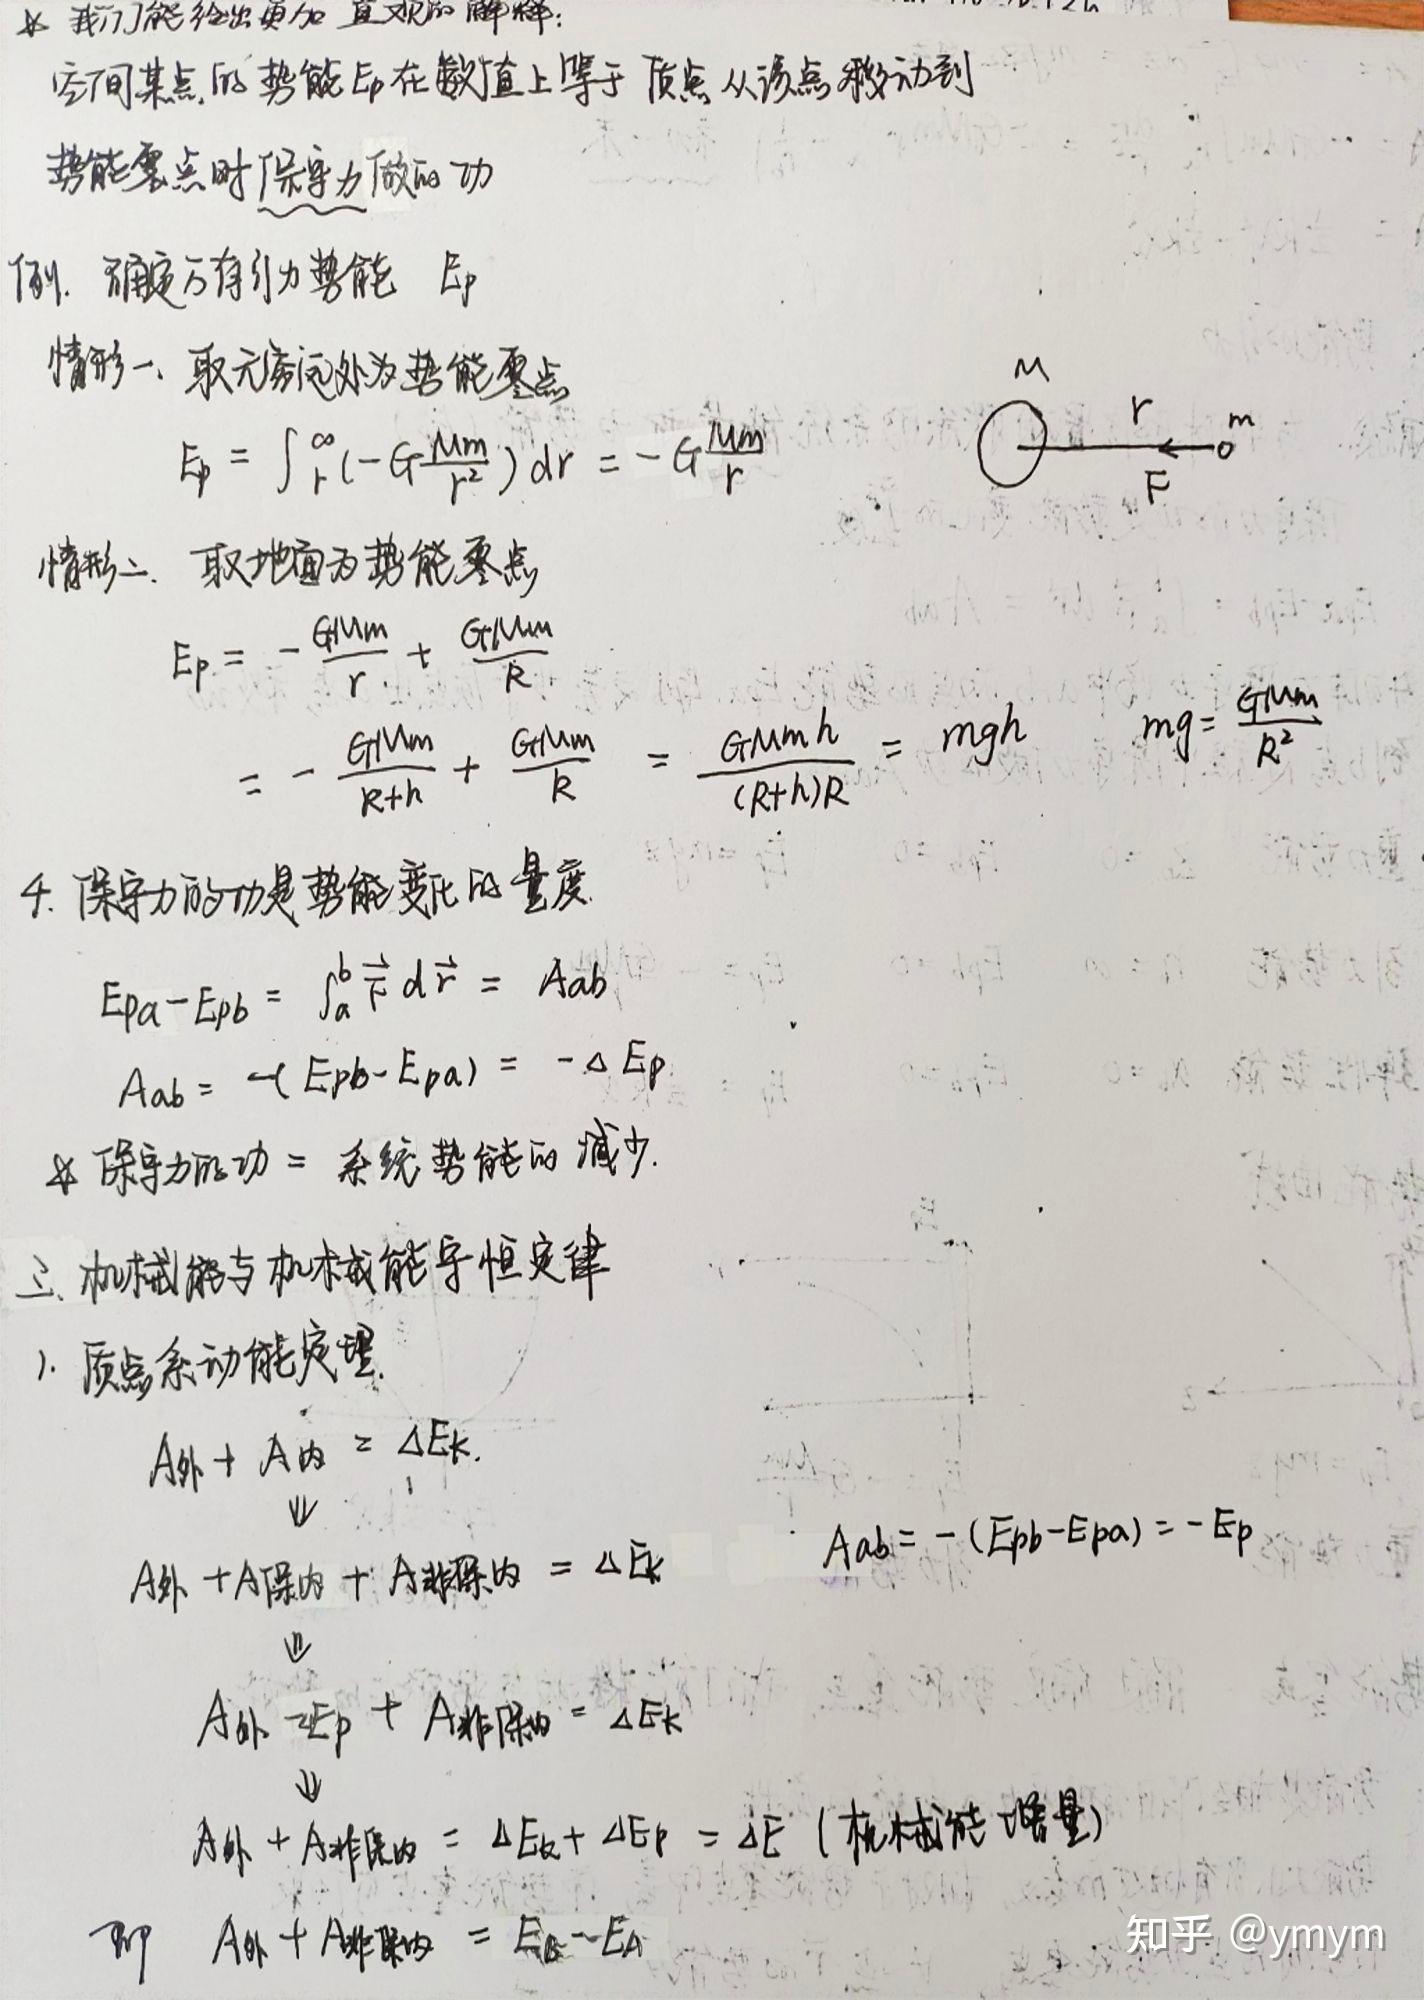 ☆ 我们能给出更加直观的解释:
空间某点的势能Ep在数值上等于质点从该点移动到
势能零点时保守力做的功
例. 确定万有引力势能 Ep
情形一、取无穷远处为势能零点
M r m F
Ep = ∫_r^∞ (-G Mm/r²) dr = -G Mm/r
情形二. 取地面为势能零点
Ep = - GMm/r + GMm/R
= - GMm/(R+h) + GMm/R = GMmh/((R+h)R) = mgh mg = GMm/R²
4. 保守力的功是势能变化的量度.
Epa-Epb = ∫_a^b F⃗ dr⃗ = Aab
Aab = -(Epb-Epa) = -ΔEp
☆ 保守力的功 = 系统势能的减少.
三. 机械能与机械能守恒定律
1. 质点系动能定理.
A外 + A内 = ΔEk.
⇓
A外 + A保内 + A非保内 = ΔEk Aab = -(Epb-Epa) = -Ep
⇓
A外 -ΔEp + A非保内 = ΔEk
⇓
A外 + A非保内 = ΔEk + ΔEp = ΔE (机械能增量)
即 A外 + A非保内 = EB - EA
知乎 @ymym